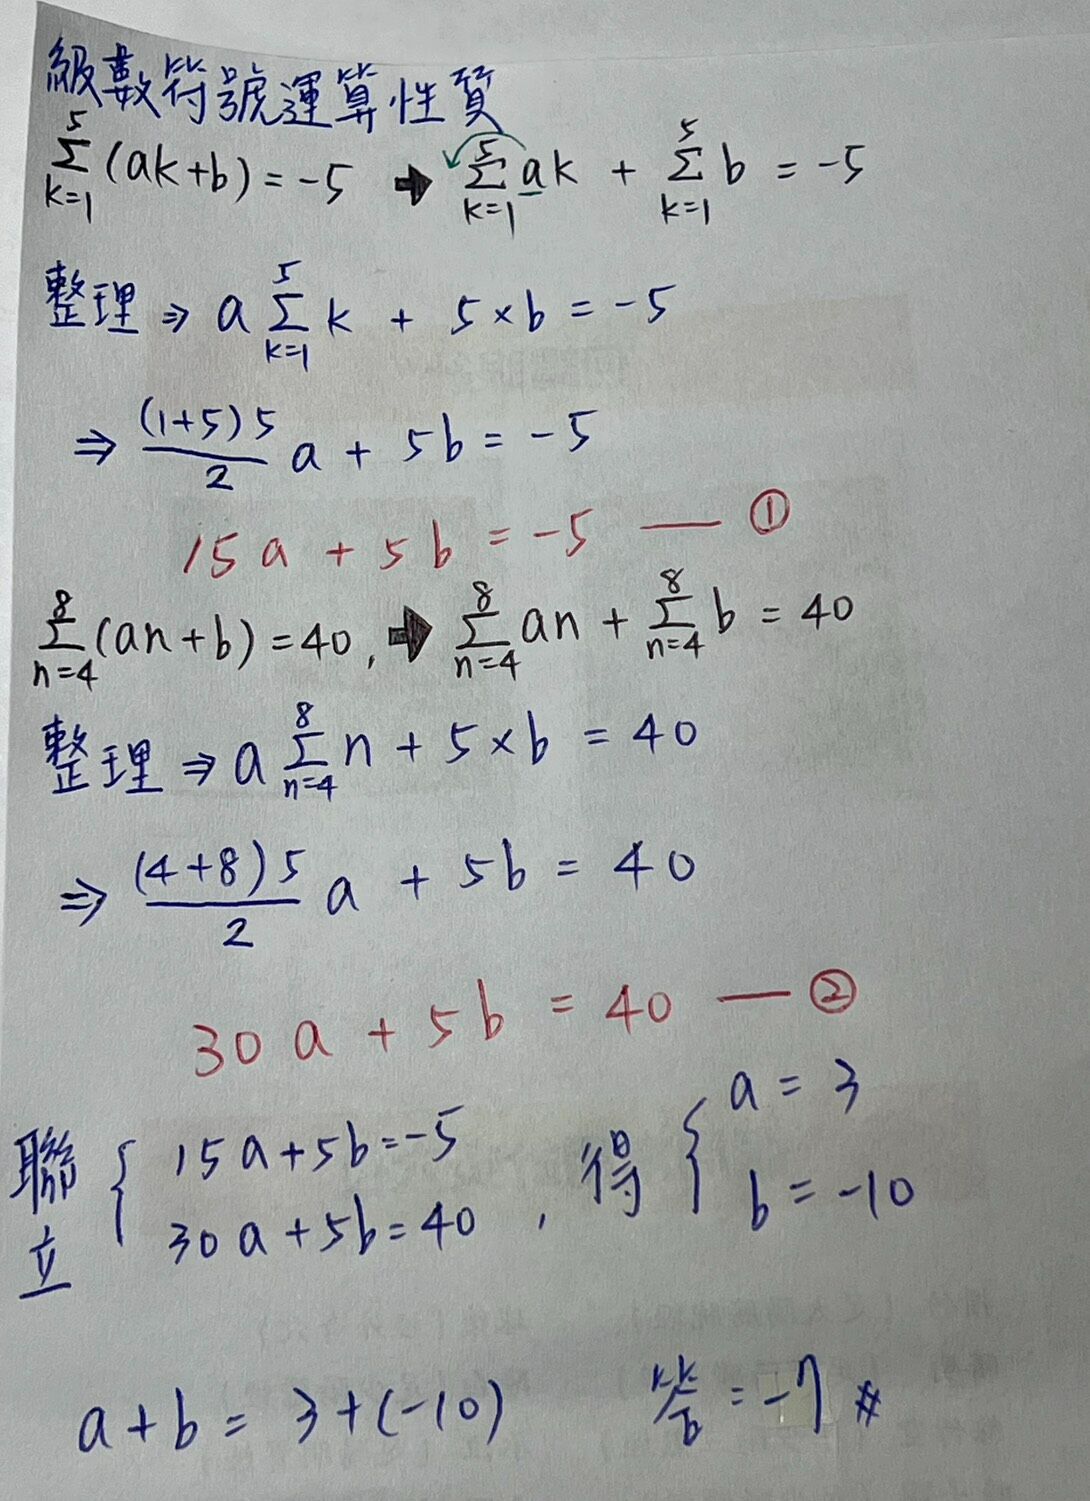 級數符號運算性質
5∑k=1 (ak+b) = -5 ➡ 5∑k=1 ak + 5∑k=1 b = -5
整理 ⇒ a 5∑k=1 k + 5×b = -5
⇒ (1+5)5/2 a + 5b = -5
15a + 5b = -5 — ①
8∑n=4 (an+b) = 40, ➡ 8∑n=4 an + 8∑n=4 b = 40
整理 ⇒ a 8∑n=4 n + 5×b = 40
⇒ (4+8)5/2 a + 5b = 40
30a + 5b = 40 — ②
聯立 { 15a+5b=-5
30a+5b=40 , 得 { a = 3
b = -10
a+b = 3+(-10) 答 = -7 #